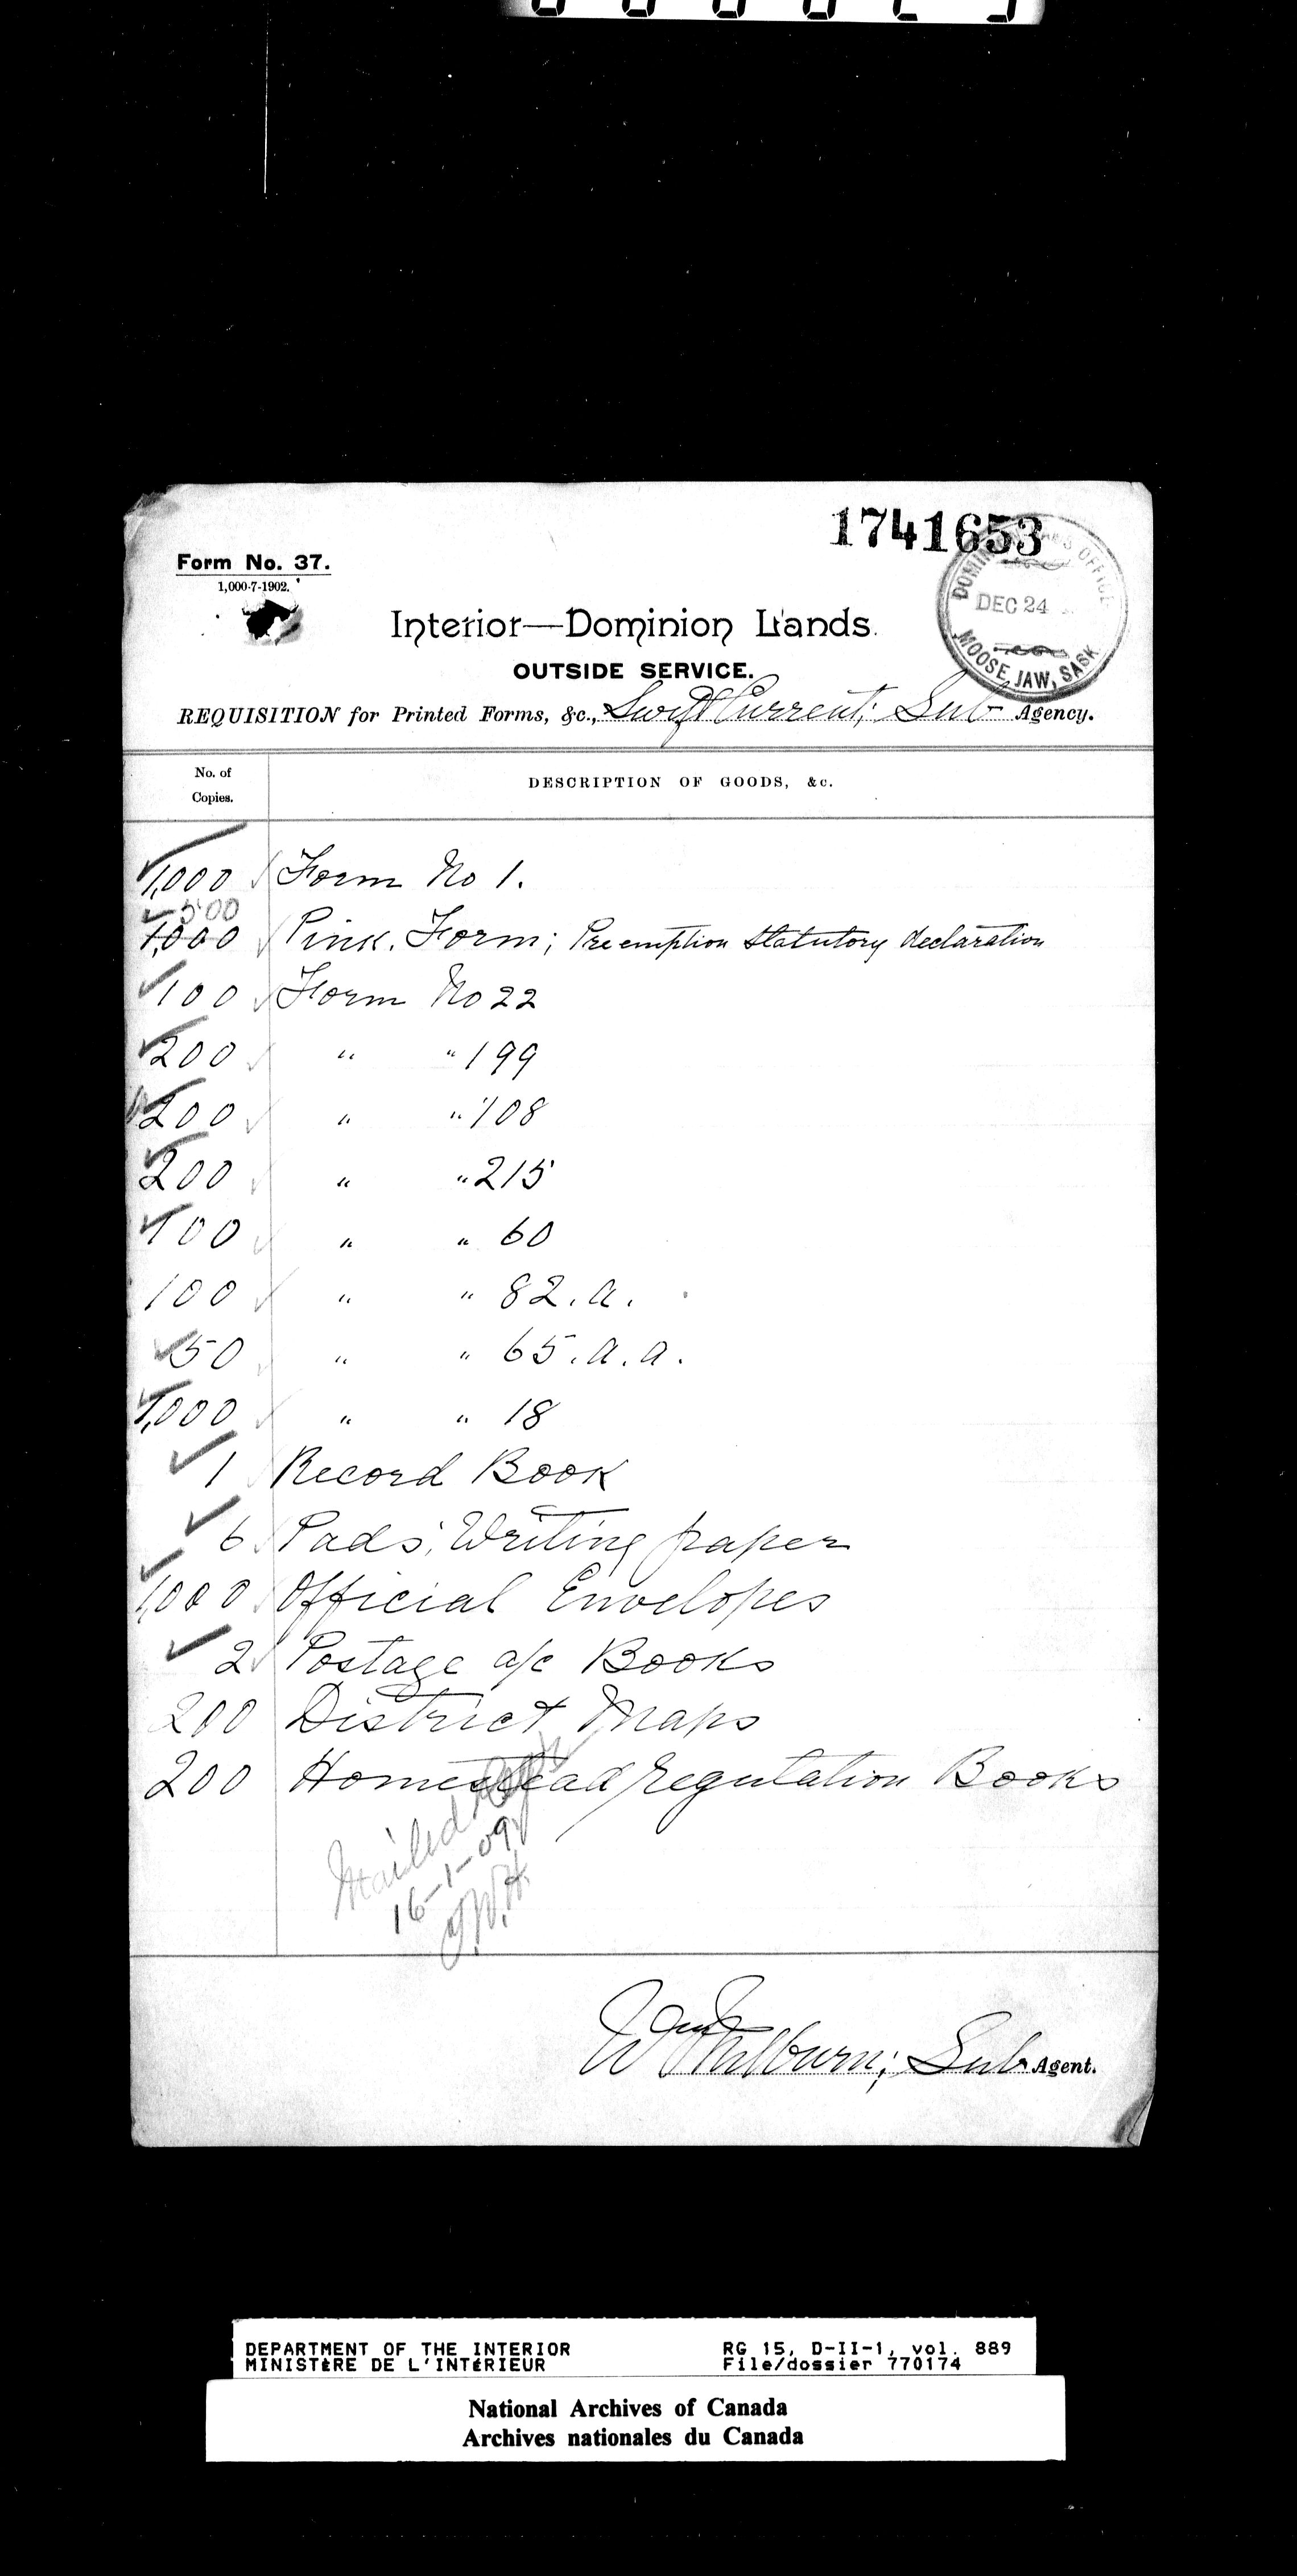 1741653
Form No. 37.
1,000-7-1902.
DOMINION LANDS OFFICE
DEC 24
MOOSE JAW, SASK
Interior—Dominion Lands.
OUTSIDE SERVICE.
REQUISITION for Printed Forms, &c., Swift Current; Sub Agency.
No. of Copies.
DESCRIPTION OF GOODS, &c.
1,000 Form No 1.
500
1,000 Pink. Form; Preemption Statutory declaration
100 Form No 22
200 " " 199
200 " " 108
200 " " 215
100 " " 60
100 " " 82.a.
50 " " 65.a.a.
1,000 " " 18
1 Record Book
6 Pads; Writing paper
1,000 Official Envelopes
2 Postage a/c Books
200 District Maps
200 Homestead regulation Books
Mailed
16-1-09
Wm Milburn; Sub Agent.
DEPARTMENT OF THE INTERIOR RG 15, D-II-1, vol. 889
MINISTÈRE DE L'INTÉRIEUR File/dossier 770174
National Archives of Canada
Archives nationales du Canada